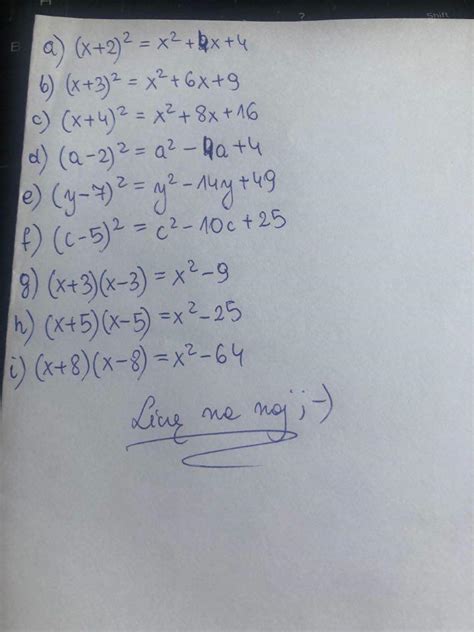 Shift
a) (x+2)² = x²+4x+4
b) (x+3)² = x²+6x+9
c) (x+4)² = x²+8x+16
d) (a-2)² = a²-4a+4
e) (y-7)² = y²-14y+49
f) (c-5)² = c²-10c+25
g) (x+3)(x-3) = x²-9
h) (x+5)(x-5) = x²-25
i) (x+8)(x-8) = x²-64
Liczę na naj ;-)